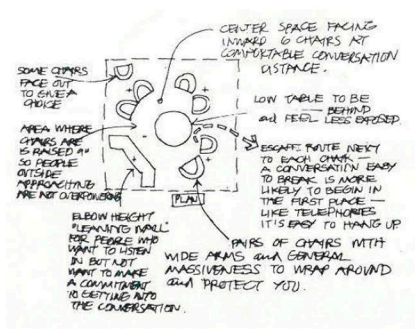 CENTER SPACE FACING
INWARD 6 CHAIRS AT
COMFORTABLE CONVERSATION
DISTANCE.
SOME CHAIRS
FACE OUT
TO GIVE A
CHOICE
LOW TABLE TO BE
BEHIND
and FEEL LESS EXPOSED.
AREA WHERE
CHAIRS ARE
IS RAISED 9"
SO PEOPLE
OUTSIDE
APPROACHING
ARE NOT OVERPOWERING
ESCAPE ROUTE NEXT
TO EACH CHAIR —
A CONVERSATION EASY
TO BREAK IS MORE
LIKELY TO BEGIN IN
THE FIRST PLACE —
LIKE TELEPHONES
IT'S EASY TO HANG UP
PLAN
ELBOW HEIGHT
"LEANING WALL"
FOR PEOPLE WHO
WANT TO LISTEN
IN BUT NOT
WANT TO MAKE
A COMMITMENT
TO GETTING INTO
THE CONVERSATION.
PAIRS OF CHAIRS WITH
WIDE ARMS and GENERAL
MASSIVENESS TO WRAP AROUND
and PROTECT YOU.